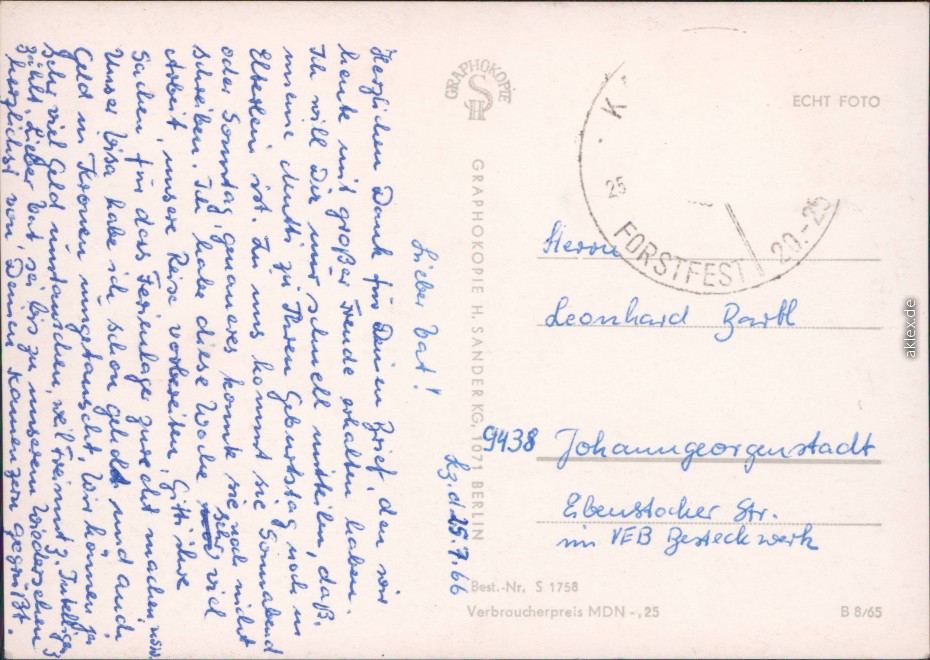 Kz. d. 25.7.66
Lieber Vat!
Herzlichen Dank für Deinen Brief, den wir
heute mit großer Freude erhalten haben.
Ich will Dir nur schnell mitteilen, daß
meine Mutti zu Ihren Geburtstag noch in
Elterlein ist. Zu uns kommt sie Sonnabend
oder Sonntag, genaueres konnte sie noch nicht
schreiben. Ich habe diese Woche sehr viel
Arbeit, unsere Reise vorbereiten, Gitti ihre
Sachen für das Ferienlager zurecht machen, usw.
Unser Visa habe ich schon geholt und auch
Geld in Kronen umgetauscht. Wir können ja
sehr viel Geld umtauschen, weil
zählt. Lieber Vat sei bis zu unseren Wiedersehen
herzlichst von Deinen Kamenzern gegrüßt.
GRAPHOKOPIE
SH
GRAPHOKOPIE H. SANDER KG, 1071 BERLIN
ECHT FOTO
K
25
FORSTFEST 20.-25
Herrn
Leonhard Bartl
9438 Johanngeorgenstadt
Eibenstocker Str.
im VEB Besteckwerk
Best.-Nr. S 1758
Verbraucherpreis MDN -,25
B 8/65
aklex.de